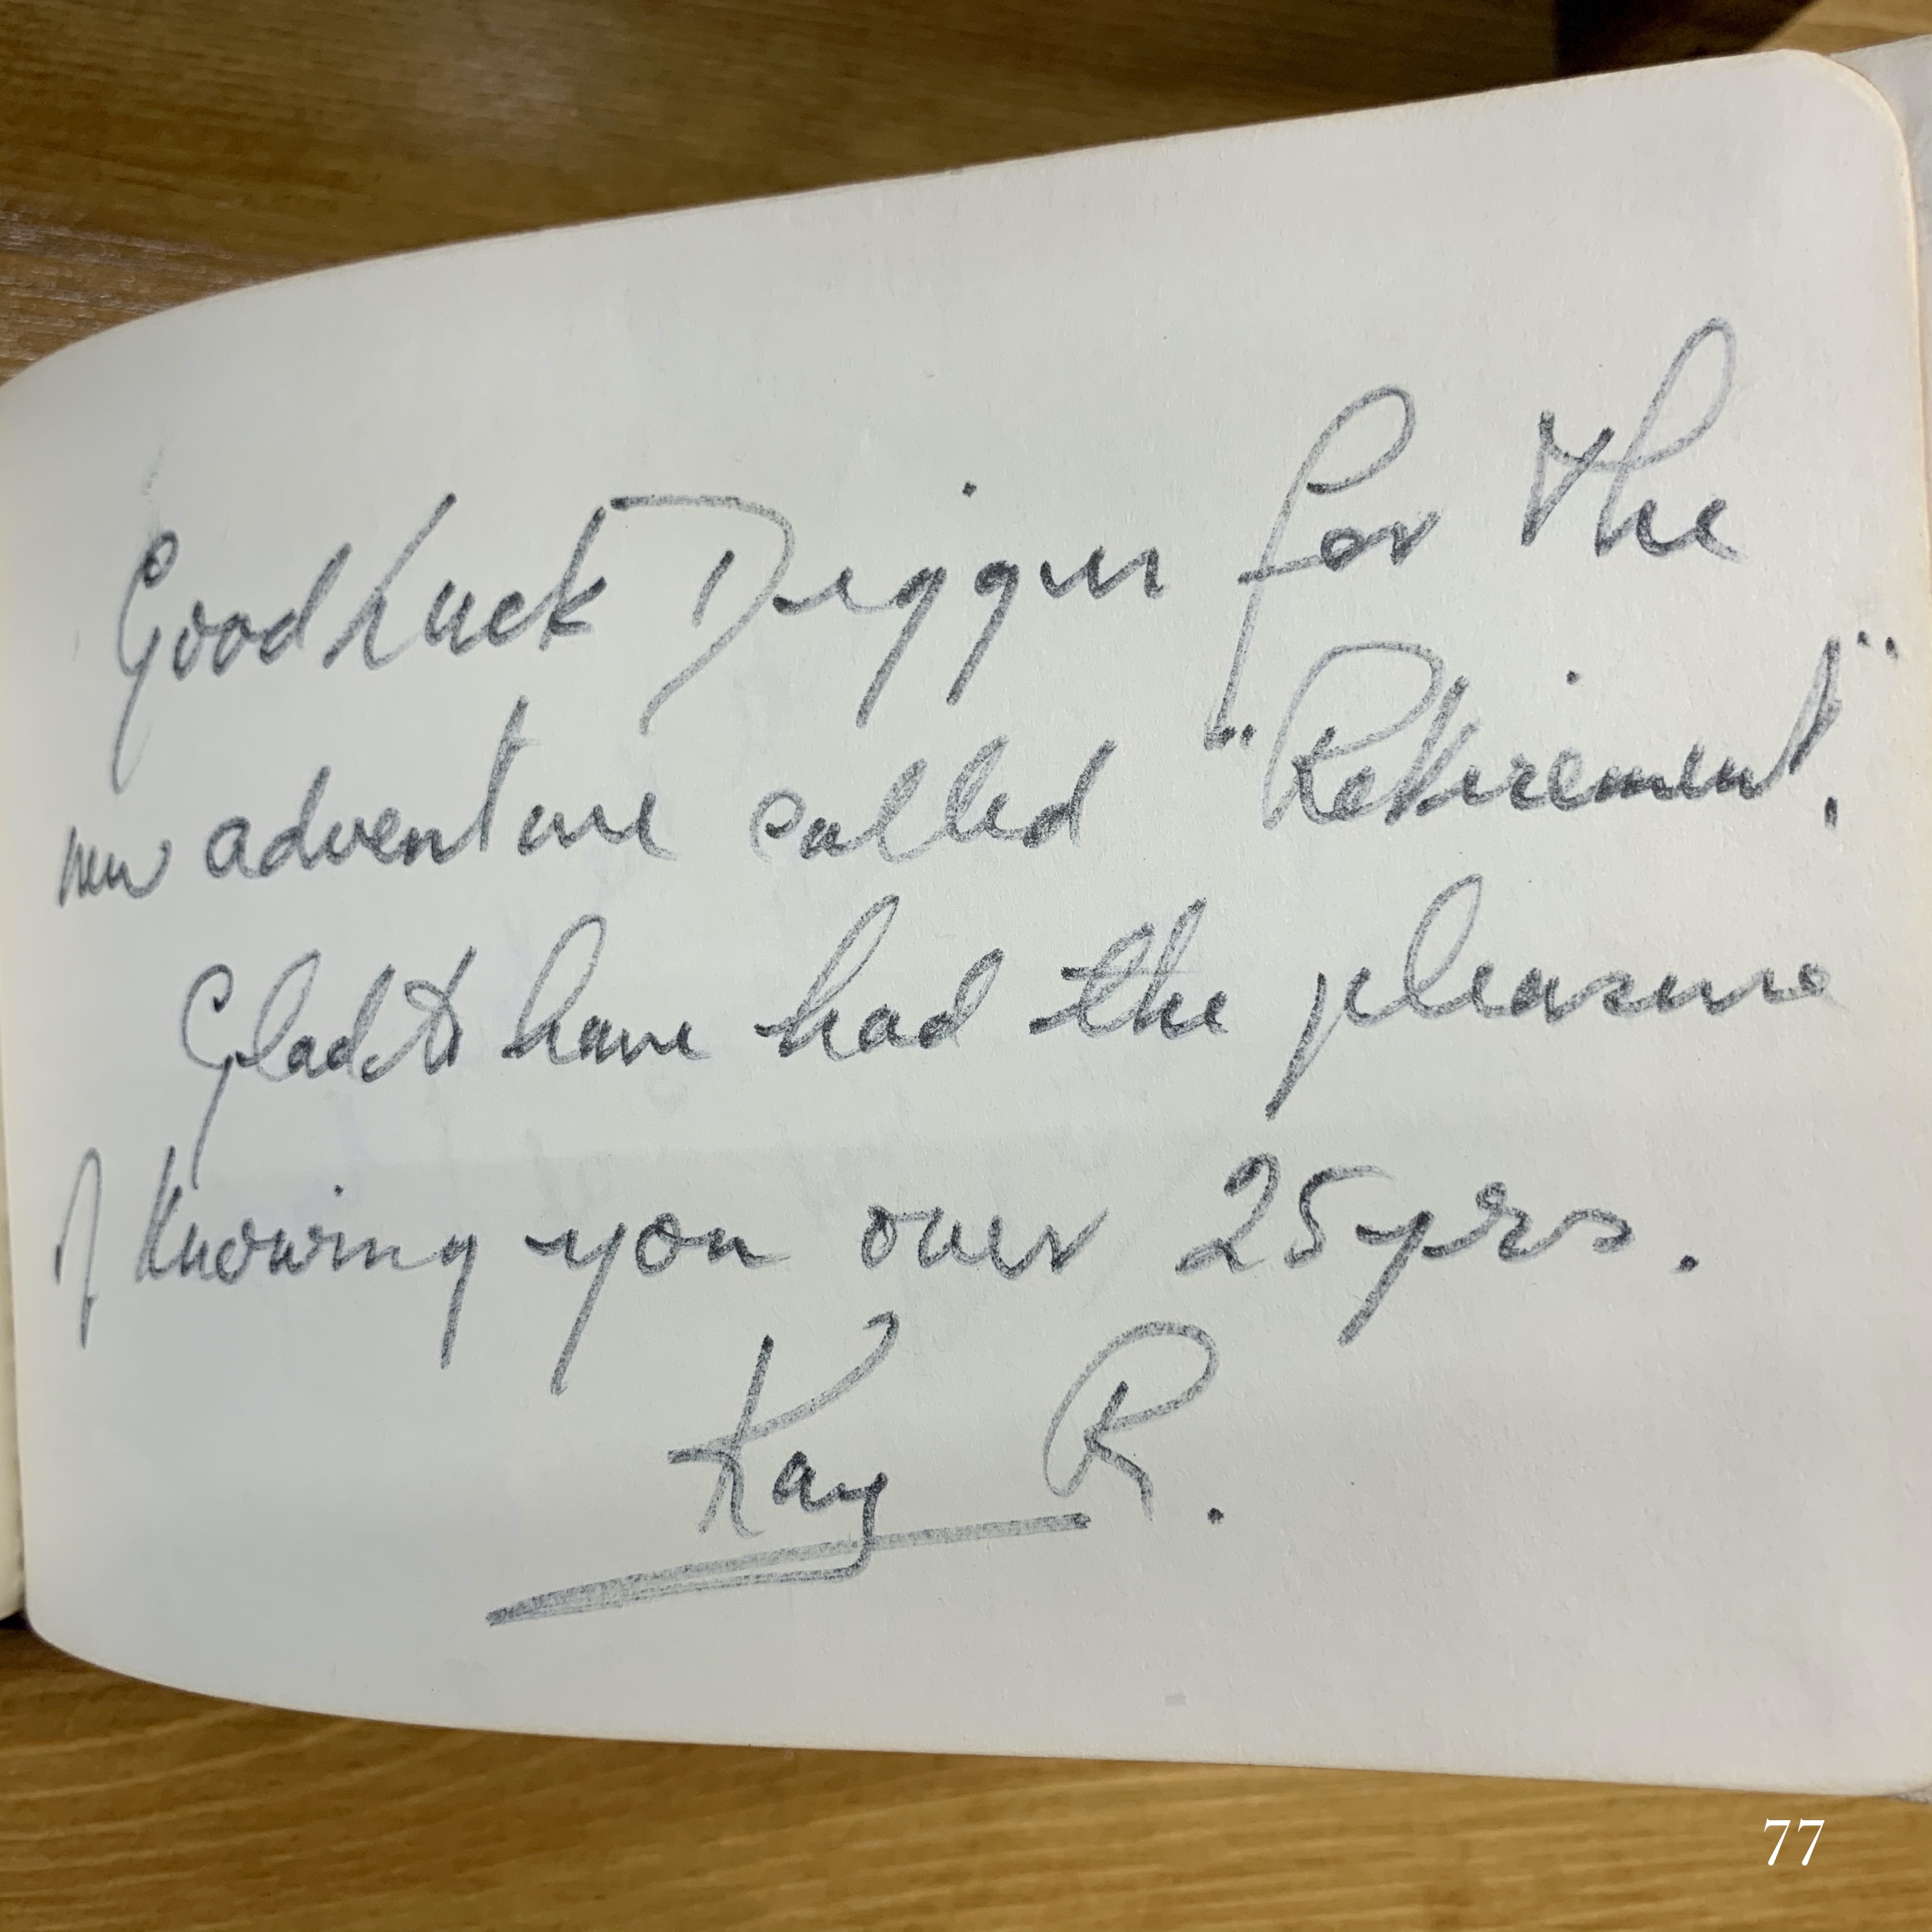 Good Luck Digger for the
new adventure called "Retirement".
Glad to have had the pleasure
of knowing you over 25 yrs.
Kay R.
77